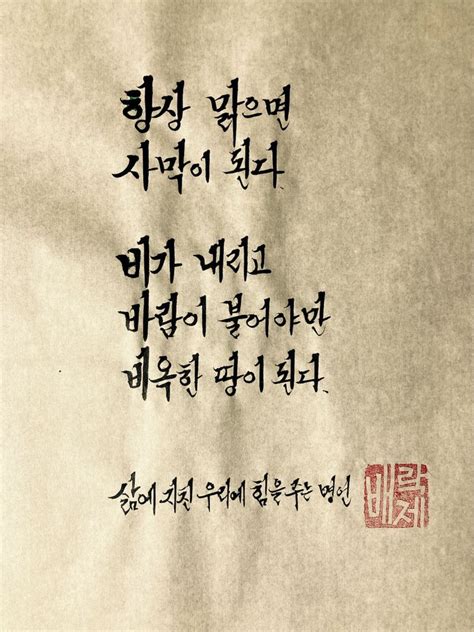 항상 맑으면
사막이 된다.
비가 내리고
바람이 불어야만
비옥한 땅이 된다.
삶에 지친 우리에 힘을 주는 명언